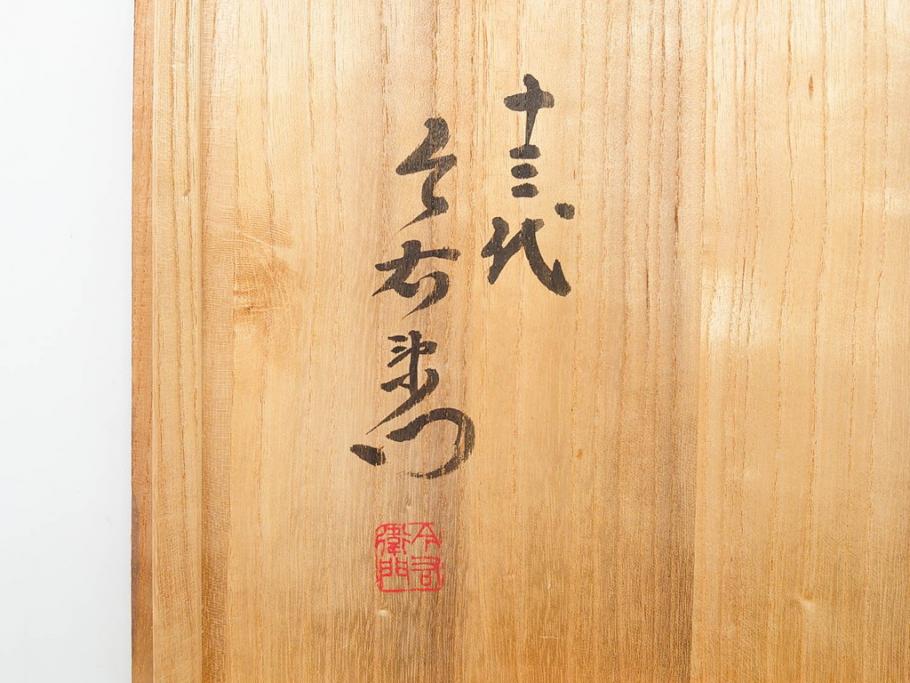 十三代
今右衛門
今右衛門